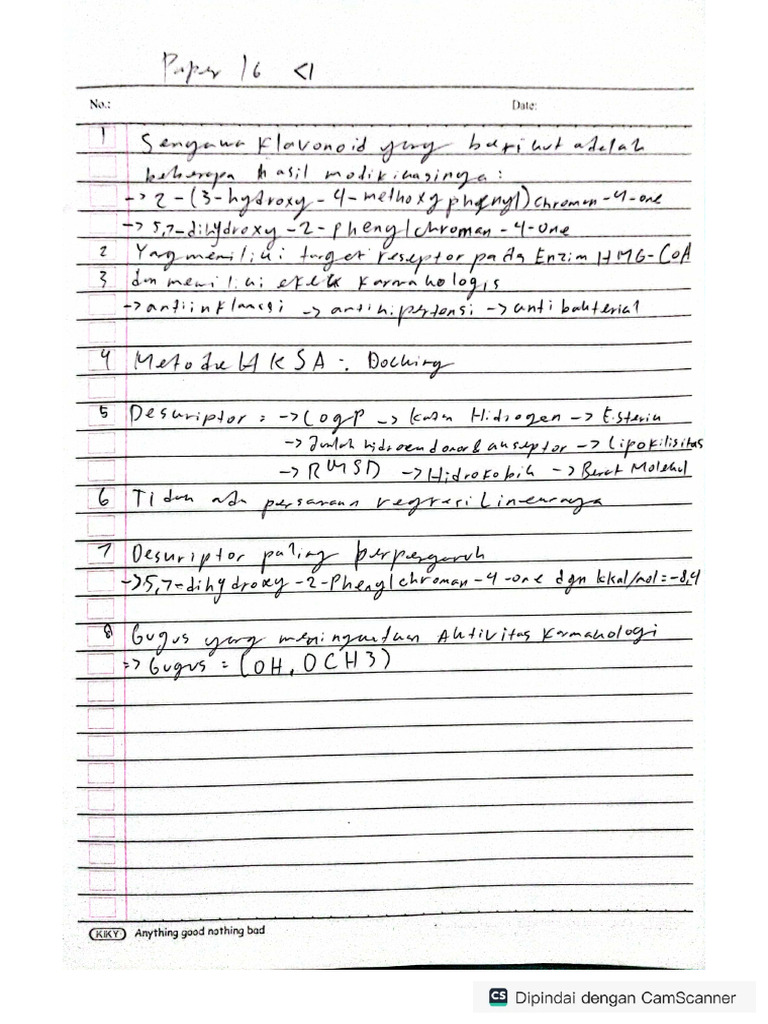 Paper 16 <1
No.: Date:
1 Senyawa Flavonoid yang berikut adalah
beberapa hasil modifikasinya :
-> 2-(3-hydroxy-4-methoxyphenyl)chroman-4-one
-> 5,7-dihydroxy-2-phenylchroman-4-one
2 Yag memiliki target reseptor pada Enzim HMG-CoA
3 dan memiliki efek farmakologis
-> antiinflamsi -> antihipertensi -> antibakterial
4 Metode HKSA : Docking
5 Descriptor : -> LogP -> Ikatan Hidrogen -> Esterik
-> Jumlah hidrogen donor & akseptor -> Lipofilisitas
-> RMSD -> Hidrofobik -> Berat Molekul
6 Tidak ada persamaan regresi Linearnya
7 Descriptor paling berpengaruh
-> 5,7-dihydroxy-2-Phenylchroman-4-one dgn kkal/mol = -8,4
8 Gugus yang meningkatkan Aktivitas Farmakologi
=> Gugus = (OH, OCH3)
KIKY Anything good nothing bad
CS Dipindai dengan CamScanner